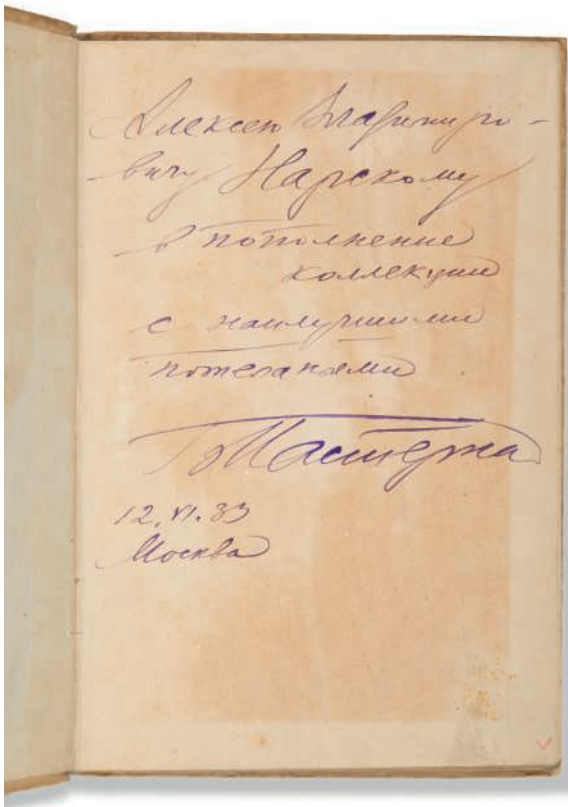 Алексею Владимиро-
вичу Нарскому
в пополнение
коллекции
с наилучшими
пожеланиями
Б Пастернак
12.VI.33
Москва